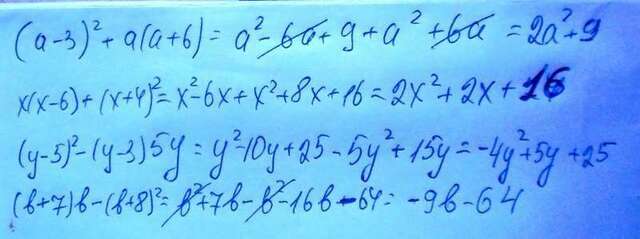 (a-3)² + a(a+6) = a² - 6a + 9 + a² + 6a = 2a² + 9
x(x-6) + (x+4)² = x² - 6x + x² + 8x + 16 = 2x² + 2x + 16
(y-5)² - (y-3)5y = y² - 10y + 25 - 5y² + 15y = -4y² + 5y + 25
(b+7)b - (b+8)² = b² + 7b - b² - 16b - 64 = -9b - 64